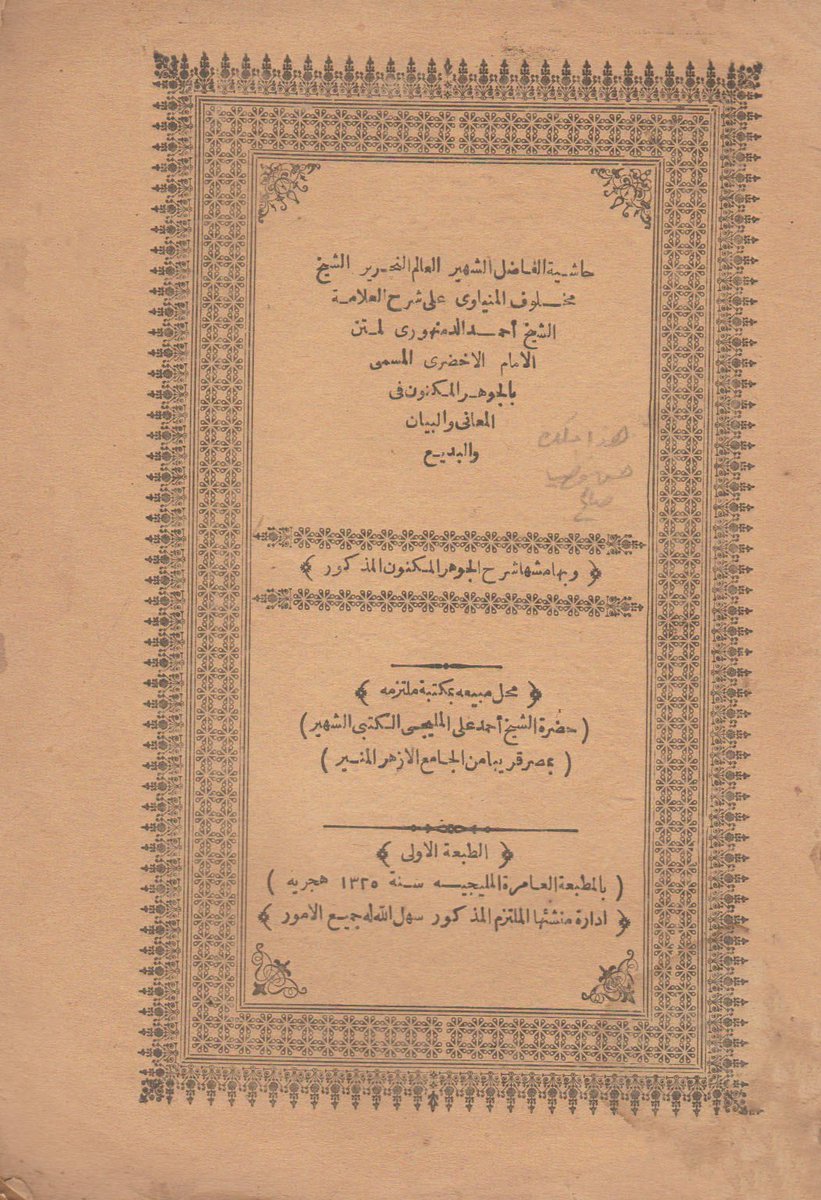 حاشية الفاضل الشهير العالم النحرير الشيخ
مخلوف المنياوى على شرح العلامة
الشيخ أحمد الدمنهورى لمتن
الامام الاخضرى المسمى
بالجوهر المكنون فى
المعانى والبيان
والبديع
﴿ وبهامشها شرح الجوهر المكنون المذكور ﴾
﴿ محل مبيعه بمكتبة ملتزمه ﴾
( حضرة الشيخ أحمد على المليجى الكتبى الشهير )
( بمصر قريبا من الجامع الازهر المنير )
﴿ الطبعة الاولى ﴾
( بالمطبعة العامرة المليجيه سنة ١٣٢٥ هجريه )
﴿ ادارة منشئها الملتزم المذكور سهل الله له جميع الامور ﴾